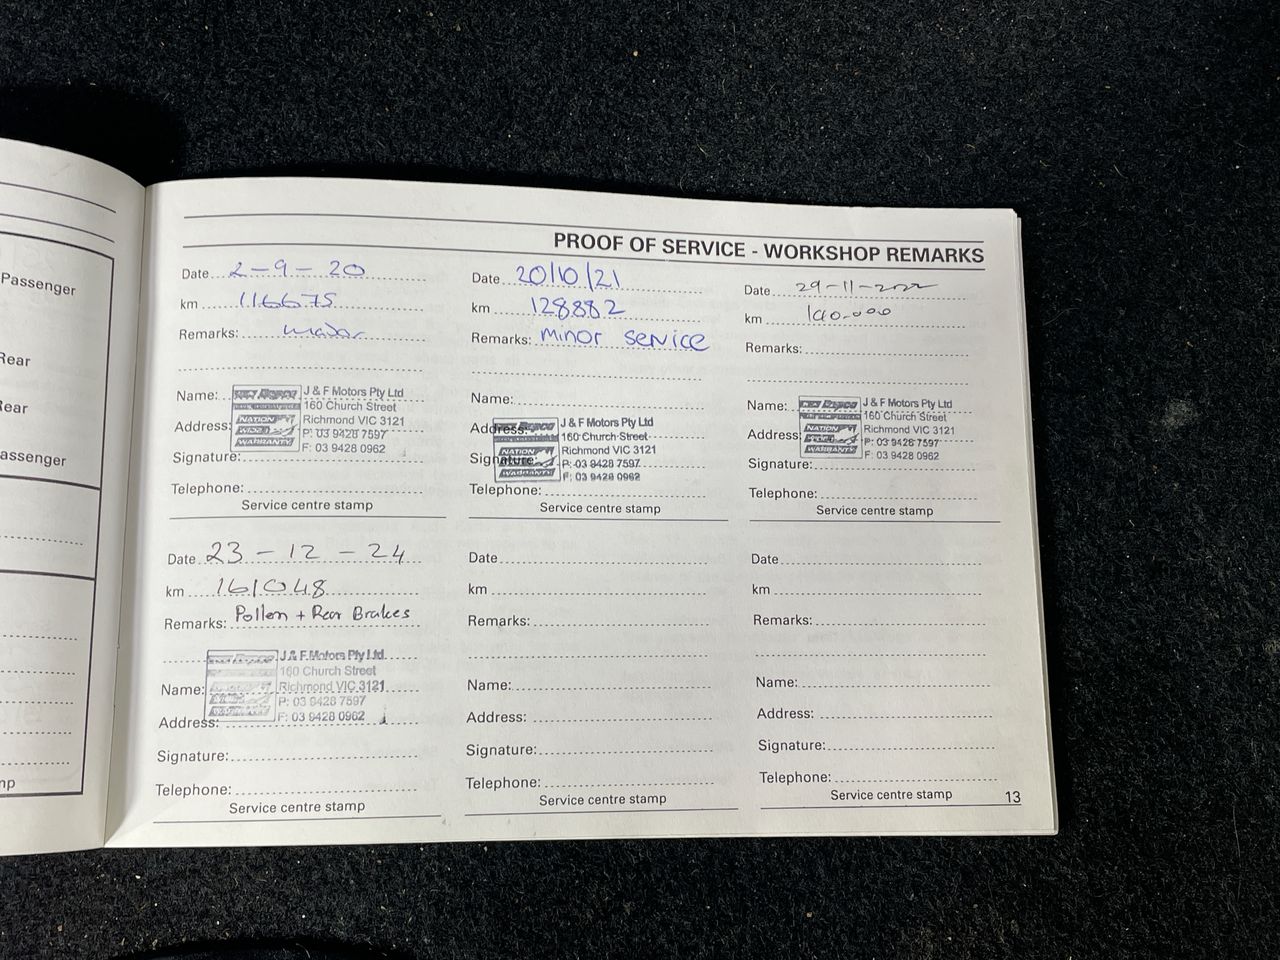 Passenger
Rear
Rear
assenger
np
PROOF OF SERVICE - WORKSHOP REMARKS
Date 2-9-20
km 116675
Remarks: major
Name:
Address:
Signature:
Telephone:
J & F Motors Pty Ltd
160 Church Street
Richmond VIC 3121
P: 03 9428 7597
F: 03 9428 0962
NATION
WIDE
WARRANTY
Service centre stamp
Date 20/10/21
km 128882
Remarks: Minor service
Name:
Address:
Signature:
Telephone:
J & F Motors Pty Ltd
160 Church Street
Richmond VIC 3121
P: 03 9428 7597
F: 03 9428 0962
NATION
WARRANTY
Service centre stamp
Date 29-11-2022
km 140.000
Remarks:
Name:
Address:
Signature:
Telephone:
J & F Motors Pty Ltd
160 Church Street
Richmond VIC 3121
P: 03 9428 7597
F: 03 9428 0962
NATION
WIDE
WARRANTY
Service centre stamp
Date 23-12-24
km 161048
Remarks: Pollen + Rear Brakes
Name:
Address:
Signature:
Telephone:
J & F Motors Pty Ltd
160 Church Street
Richmond VIC 3121
P: 03 9428 7597
F: 03 9428 0962
Service centre stamp
Date
km
Remarks:
Name:
Address:
Signature:
Telephone:
Service centre stamp
Date
km
Remarks:
Name:
Address:
Signature:
Telephone:
Service centre stamp
13